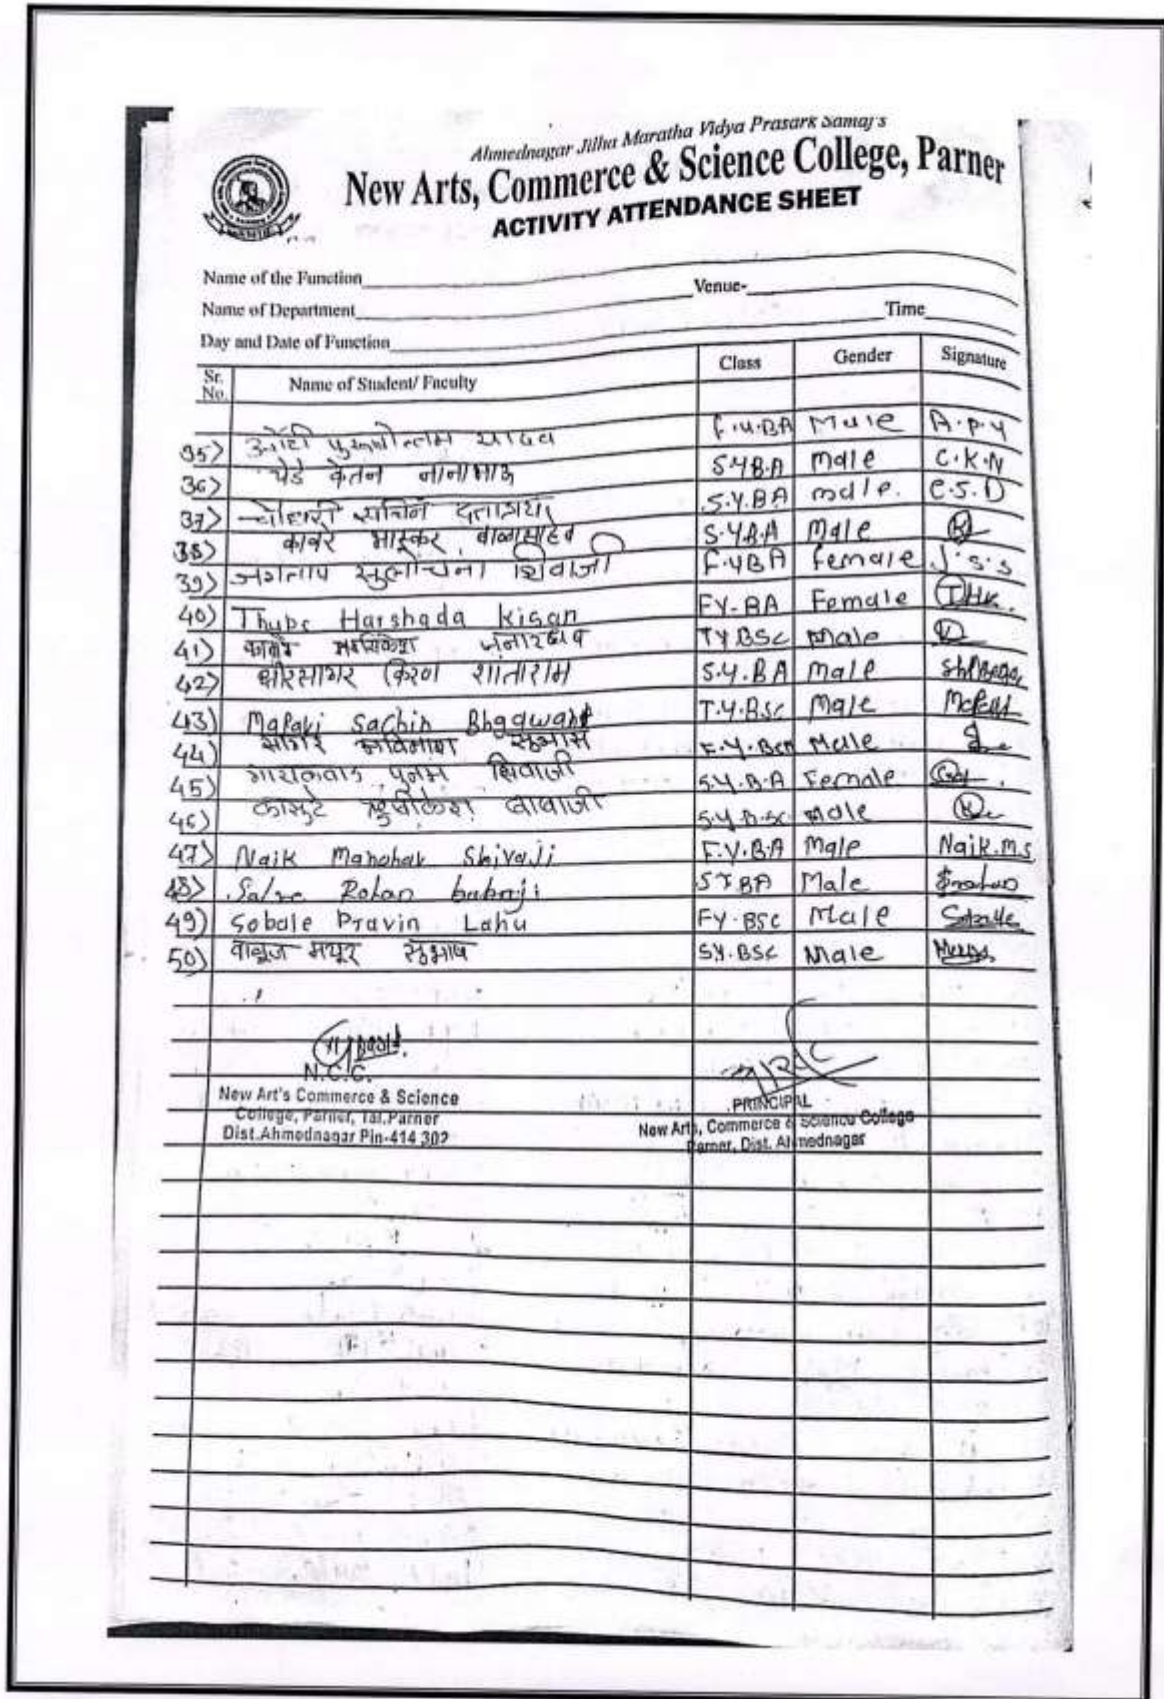 Ahmednagar Jilha Maratha Vidya Prasark Samaj's
New Arts, Commerce & Science College, Parner
ACTIVITY ATTENDANCE SHEET
Name of the Function Venue-
Name of Department Time
Day and Date of Function
Sr. No. Name of Student/ Faculty Class Gender Signature
35) पुरुषोत्तम यादव F.Y.BA Male A.P.Y
36) येडे केतन नानाभाऊ S.Y.B.A male C.K.N
37) चौधरी सचिन दत्तात्रया S.Y.BA male. C.S.D
38) कावरे भास्कर बाळासाहेब S.Y.B.A Male
39) जगताप सुलोचना शिवाजी F.Y.BA female J.S.S
40) Thube Harshada Kisan FY-BA Female T.H.K.
41) कावरे TY BSC Male
42) क्षीरसागर किरण शांताराम S.Y.BA male
43) Malavi Sachin Bhagwant T.Y.BSc Male
44) अविनाश सुभाष F.Y. Male
45) गायकवाड पुनम शिवाजी S.Y.B.A Female
46) कासुटे ऋषीकेश बाबाजी S.Y.B.SC male
47) Naik Manohar Shivaji F.Y.B.A Male Naik.M.S
48) Salve Rohan babaji SYBA Male
49) Sobale Pravin Lahu FY.BSC Male
50) वाळूज मयूर सुभाष SY.BSC Male
N.C.C.
New Art's Commerce & Science
College, Parner, Tal.Parner
Dist.Ahmednagar Pin-414 302
PRINCIPAL
New Arts, Commerce & Science College
Parner, Dist. Ahmednagar